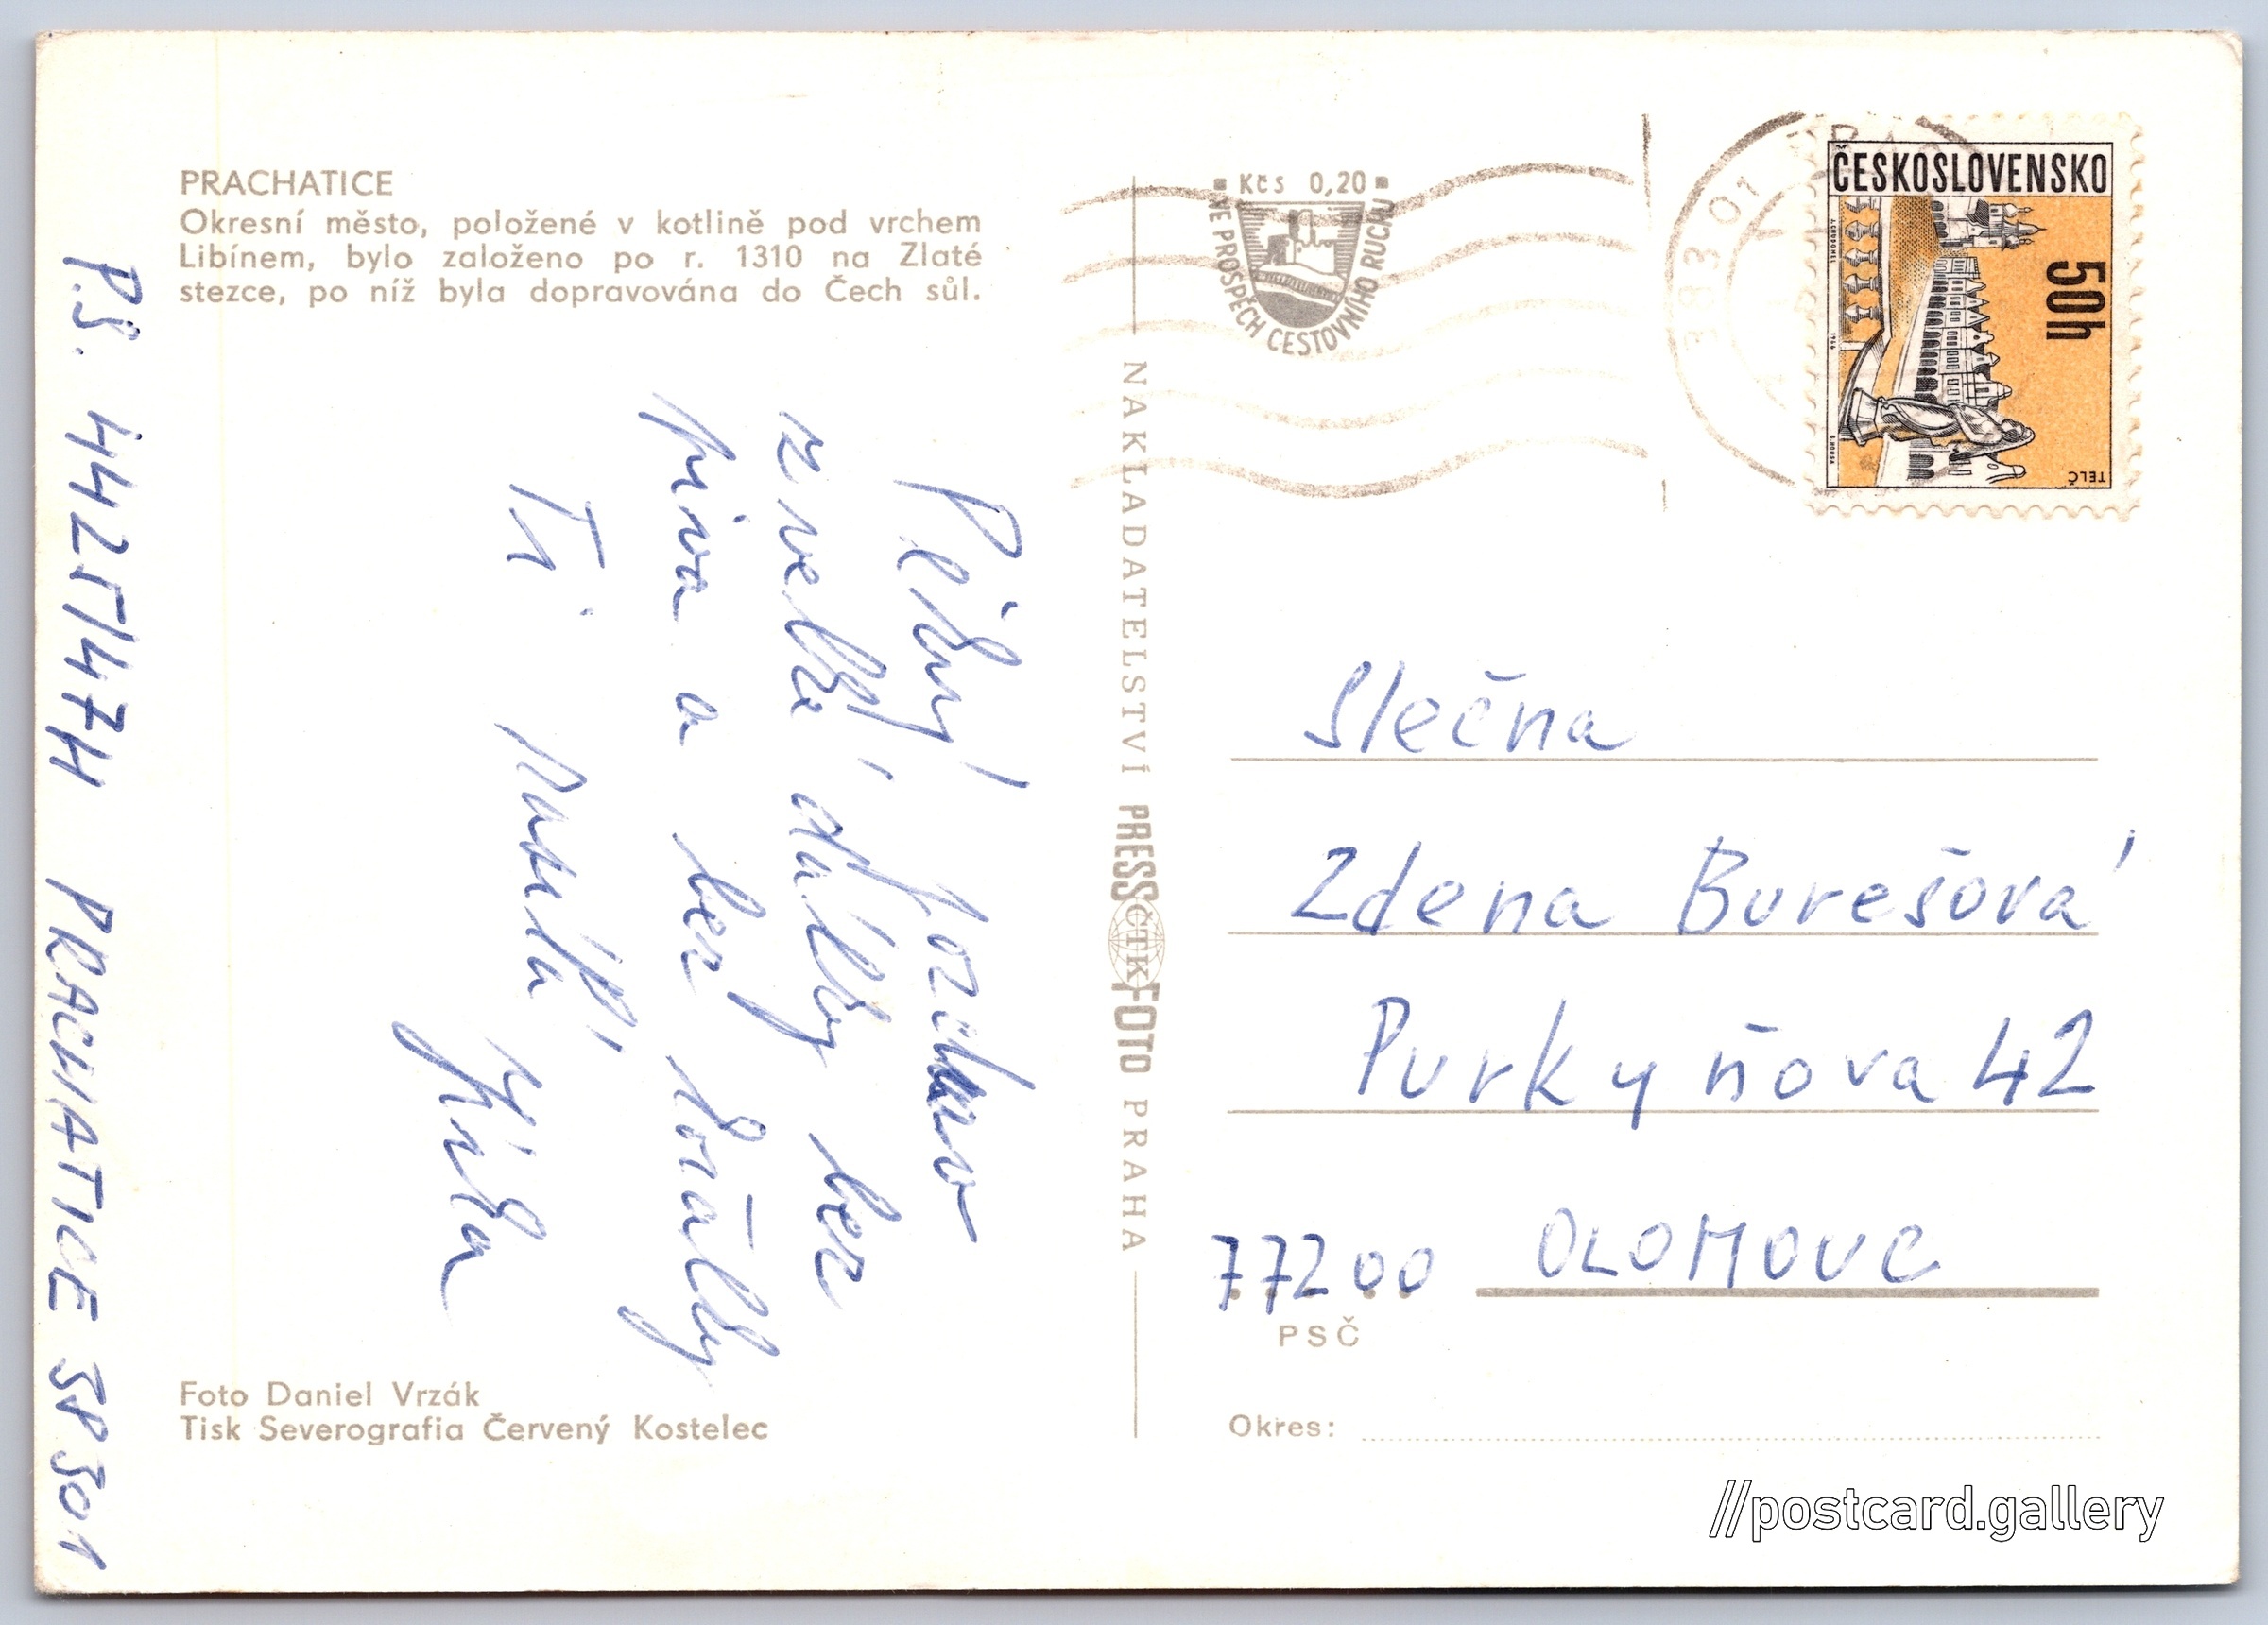 PRACHATICE
Okresní město, položené v kotlině pod vrchem
Libínem, bylo založeno po r. 1310 na Zlaté
stezce, po níž byla dopravována do Čech sůl.
Pěkný pozdrav
z velké dálky bez
piva a bez
Ti posílá
Jirka
P.S. PRACHATICE
Foto Daniel Vrzák
Tisk Severografia Červený Kostelec
NAKLADATELSTVÍ PRESSFOTO PRAHA
ČTK
Kčs 0,20
VE PROSPĚCH CESTOVNÍHO RUCHU
383 01
ČESKOSLOVENSKO
50h
TELČ
Slečna
Zdena Burešová
Purkyňova 42
77200 OLOMOUC
PSČ
Okres:
//postcard.gallery